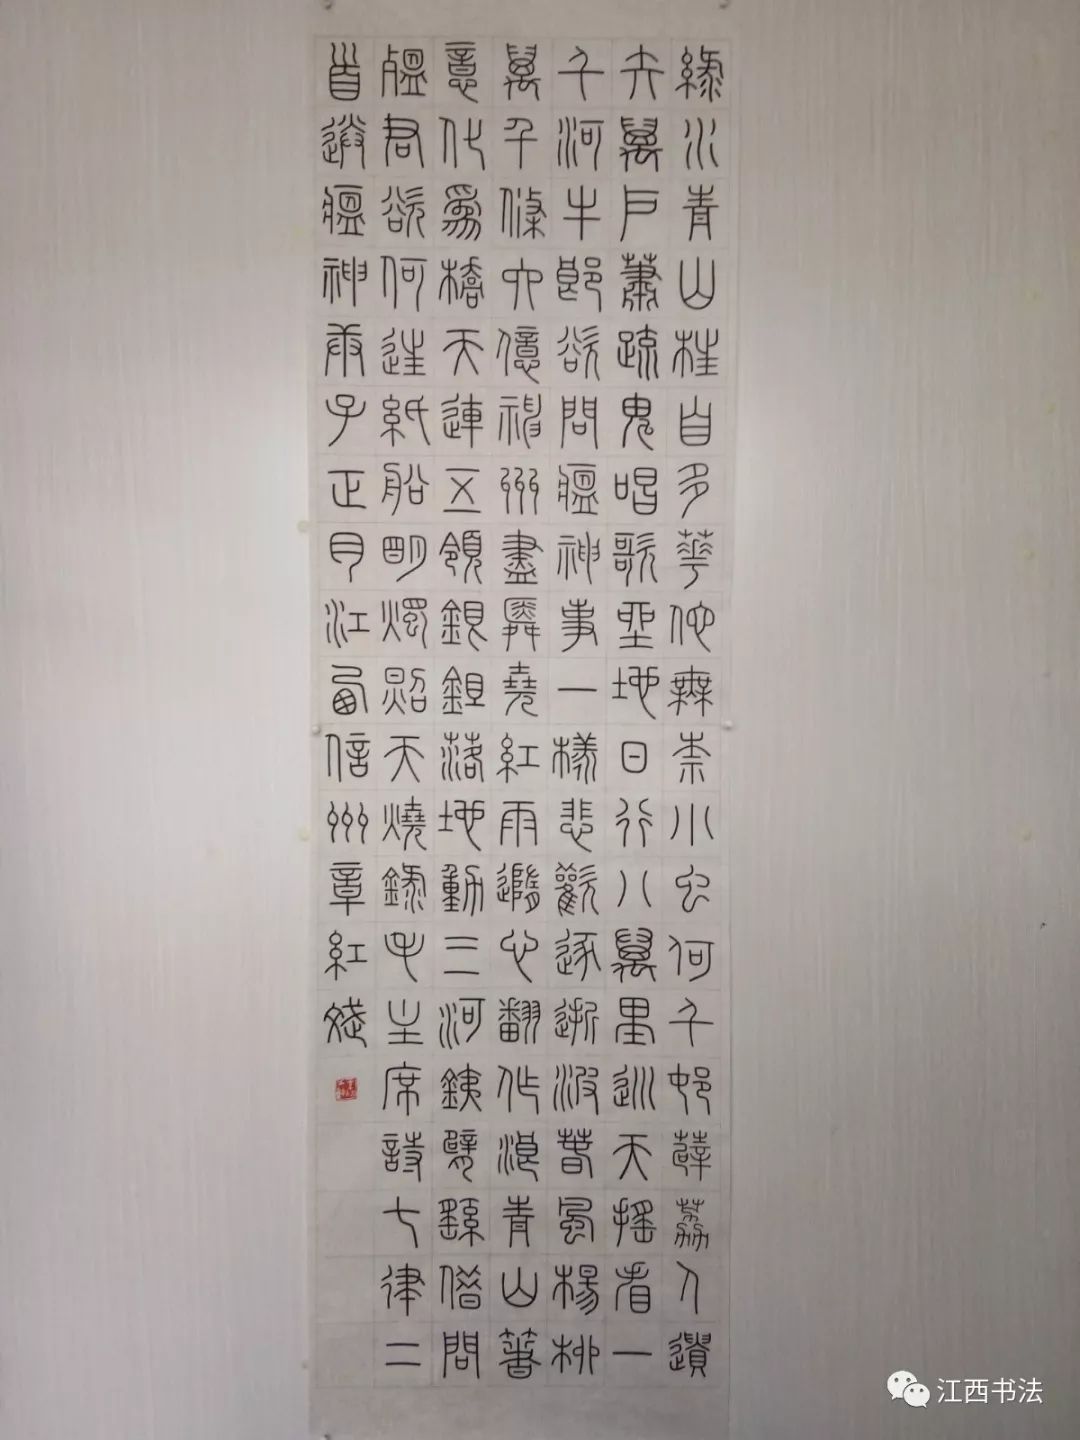 綠水青山枉自多華佗無奈小虫何千邨薜荔人遺
矢萬戶蕭疏鬼唱歌坐地日行八萬里巡天搖看一
千河牛郎欲問瘟神事一樣悲歡逐逝波春風楊柳
萬千條六億神州盡舜堯紅雨隨心翻作浪青山著
意化為橋天連五領銀鉏落地動三河鐵臂繇借問
瘟君欲何往紙船明燭照天燒錄毛主席詩七律二
首送瘟神庚子正月江西信州章紅
江西书法